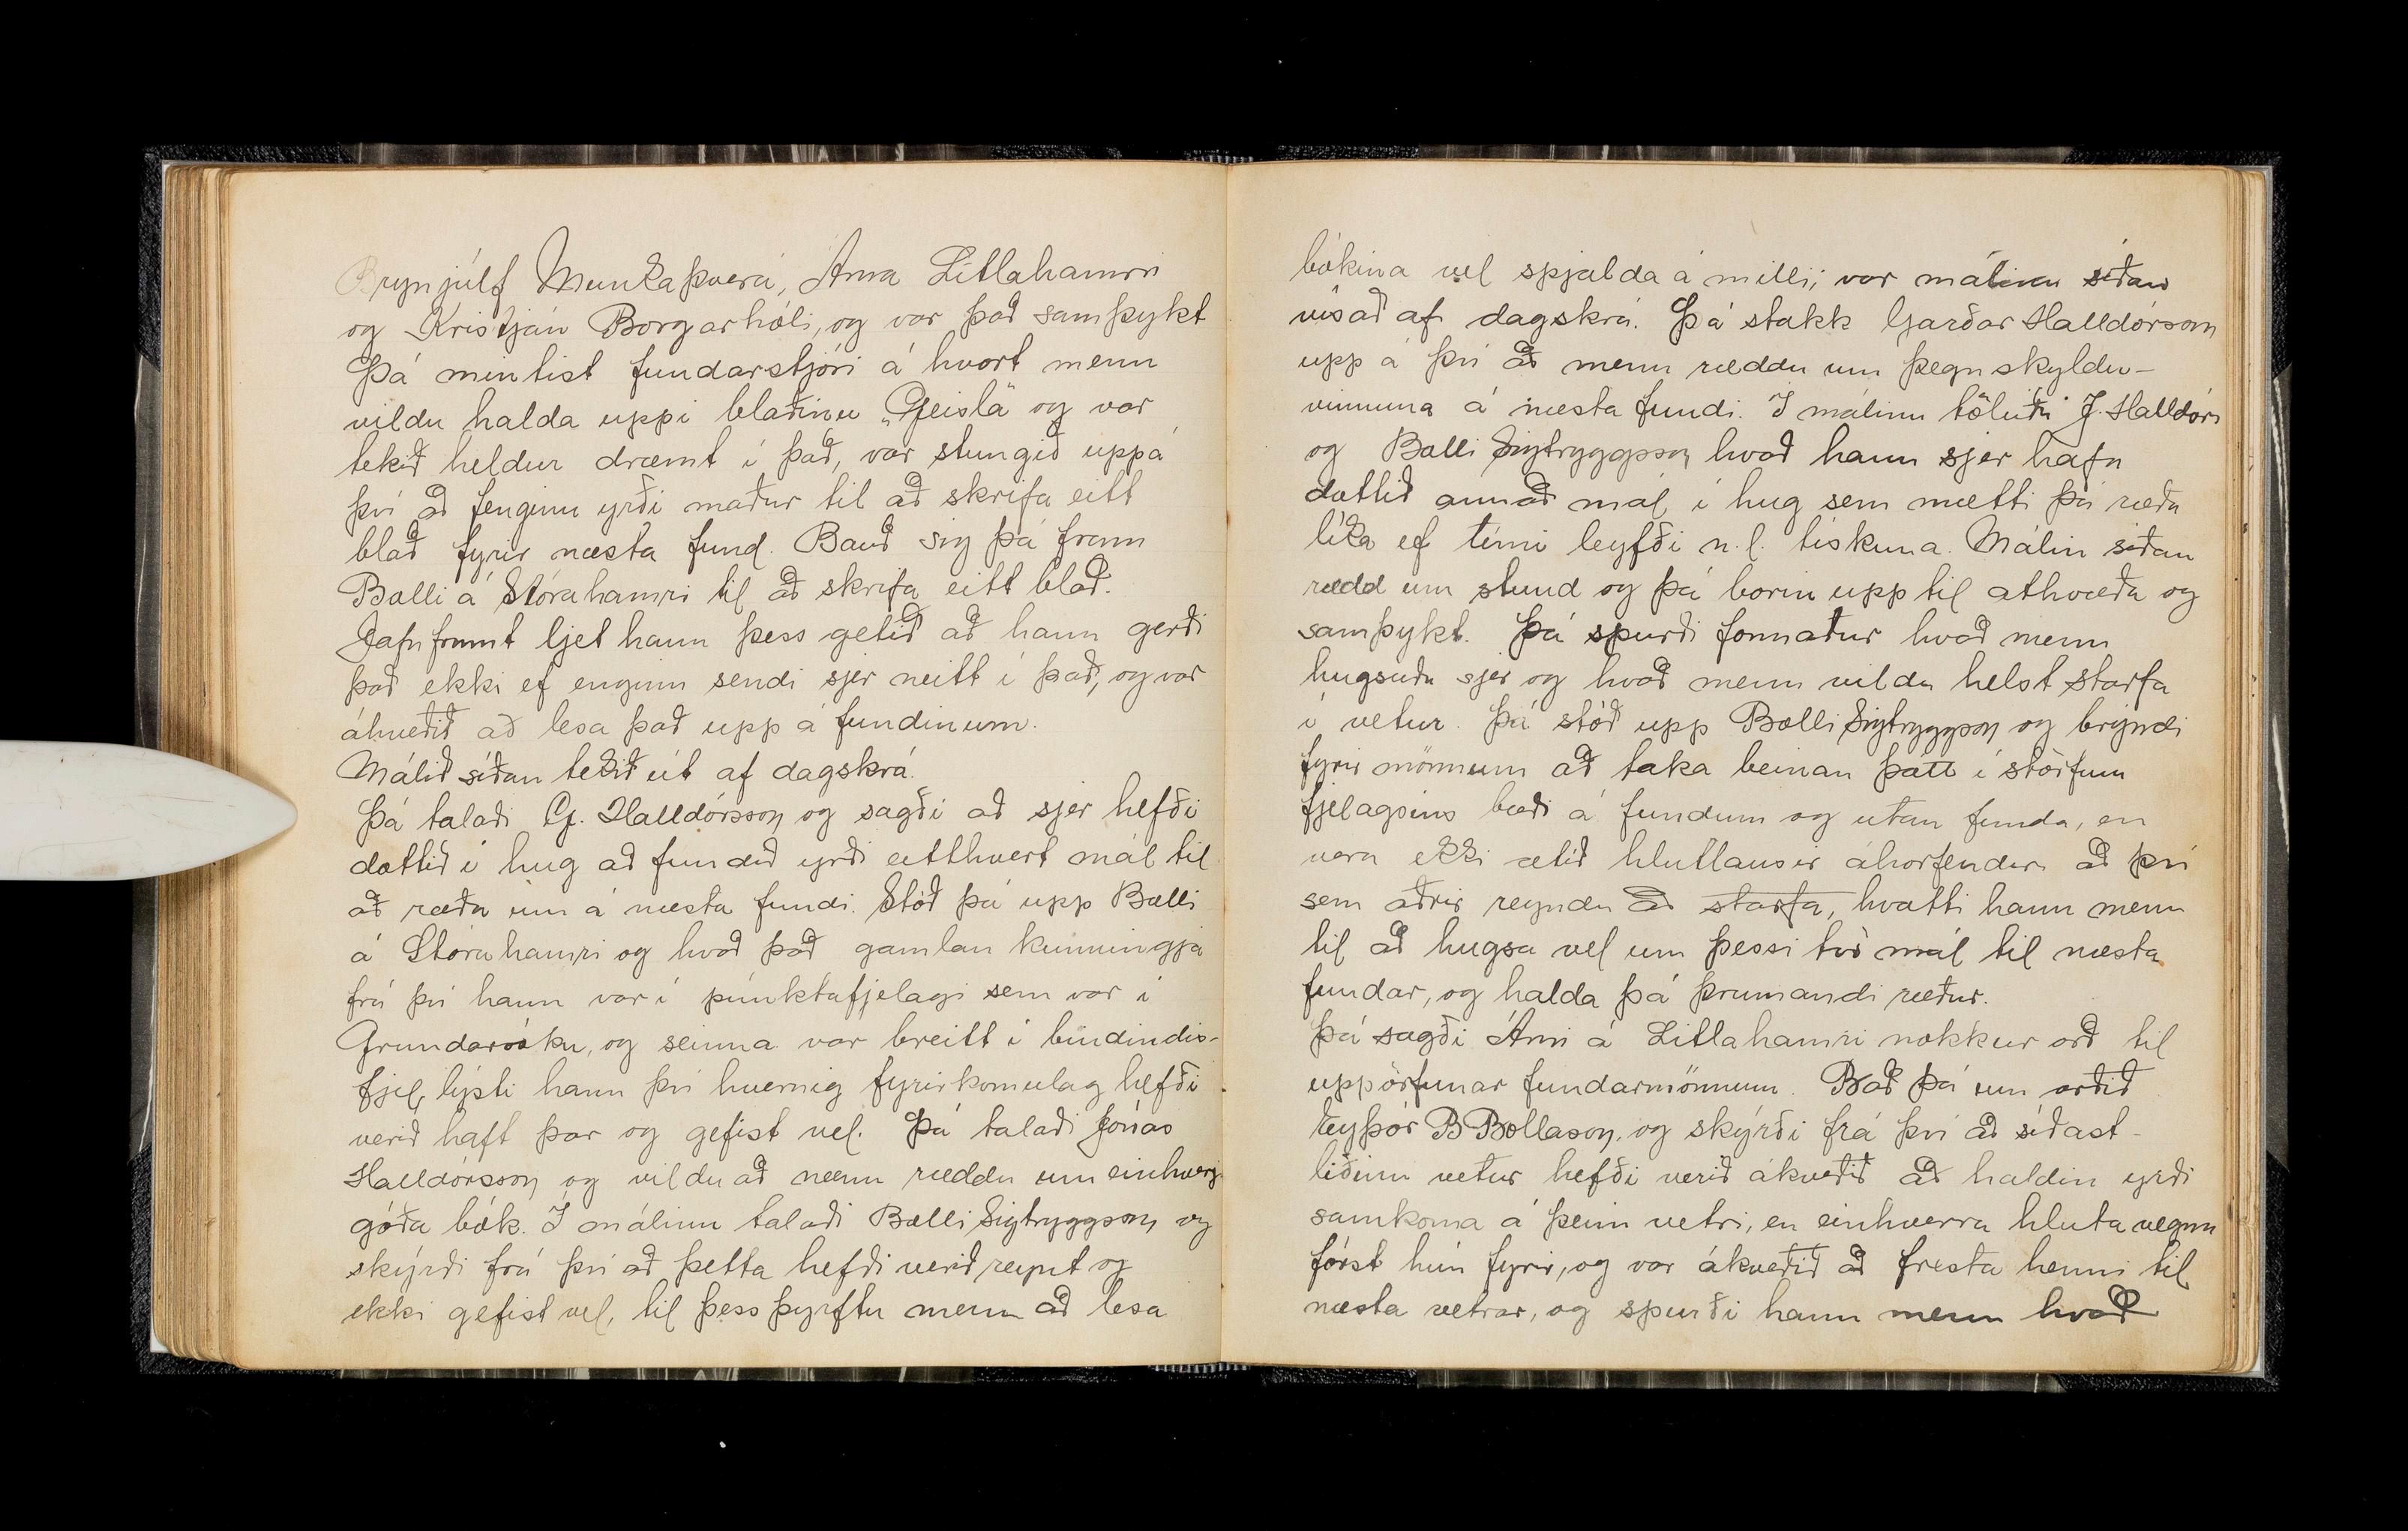 Brynjúlf Munkaþverá, Árna Litlahamri
og Kristján Borgarhóli, og var það samþykt
Þá mintist fundarstjóri á hvort menn
vildu halda uppi blaðinu „Geisla" og var
tekið heldur dræmt í það, var stungið uppá
því að fenginn yrði maður til að skrifa eitt
blað fyrir næsta fund. Bauð sig þá fram
Balli á Stórahamri til að skrifa eitt blað.
Jafnframt ljet hann þess getið að hann gerði
það ekki ef enginn sendi sjer neitt í það, og var
ákveðið að lesa það upp á fundinum.
Málið síðan tekið út af dagskrá.
Þá talaði G. Halldórsson og sagði að sjer hefði
dottið í hug að fundið yrði eitthvert mál til
að ræða um á næsta fundi. Stóð þá upp Balli
á Stórahamri og kvað það gamlan kunningja
frá því hann var í púnktafjelagi sem var í
Grundarsókn, og seinna var breitt í bindindis-
fjel, lýsti hann því hvernig fyrirkomulag hefði
verið haft þar og gefist vel. Þá talaði Jónas
Halldórsson og vildu að menn ræddu um einhverja
góða bók. Í málinu talaði Balli Sigtryggson og
skýrði frá því að þetta hefði verið reynt og
ekki gefist vel, til þess þyrftu menn að lesa
bókina vel spjalda á milli; var málinu síðan
vísað af dagskrá. Þá stakk Garðar Halldórsson
upp á því að menn ræddu um þegnskyldu-
vinnuna á næsta fundi. Í málinu töluðu J. Halldórs
og Balli Sigtryggsson hvað hann sjer hafa
dottið annað mál í hug sem mætti þá ræða
líka ef tími leyfði n.l. tískuna. Málin síðan
rædd um stund og þá borin upp til athvæða og
samþykt. Þá spurði formaður hvað menn
hugsuðu sjer og hvað menn vildu helst starfa
í vetur. Þá stóð upp Balli Sigtryggson og brýndi
fyrir mönnum að taka beinan þátt í störfum
fjelagsins bæði á fundum og utan funda, en
vera ekki ætíð hlutlausir áhorfendur að því
sem aðrir reyndu að starfa, hvatti hann menn
til að hugsa vel um þessi tvö mál til næsta
fundar, og halda þá þrumandi ræður.
Þá sagði Árni á Litlahamri nokkur orð til
uppörfunar fundarmönnum. Bað þá um orðið
Eyþór B Bollason, og skýrði frá því að síðast-
liðinn vetur hefði verið ákveðið að haldin yrði
samkoma á þeim vetri, en einhverra hluta vegna
fórst hún fyrir, og var ákveðið að fresta henni til
næsta vetrar, og spurði hann menn hvað